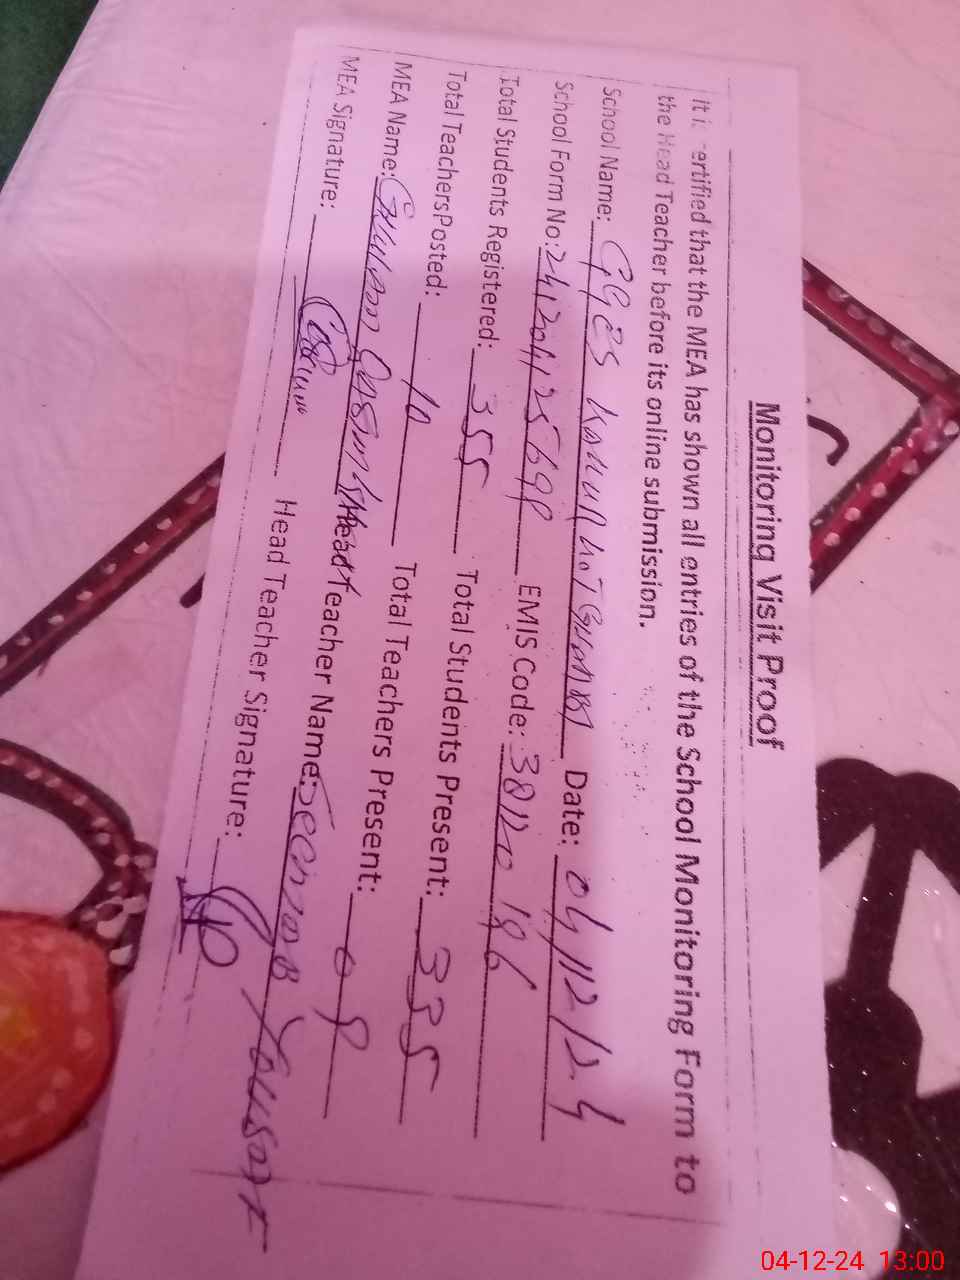 Monitoring Visit Proof
It is certified that the MEA has shown all entries of the School Monitoring Form to
the Head Teacher before its online submission.
School Name: GGES Date: 04/12/24
School Form No: EMIS Code: 38120186
Total Students Registered: 355 Total Students Present: 335
Total TeachersPosted: 10 Total Teachers Present: 09
MEA Name: Ghulam Head Teacher Name:
MEA Signature: Head Teacher Signature:
04-12-24 13:00